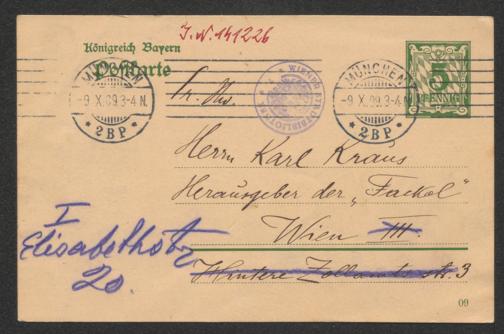 J.N. 141226
Königreich Bayern
Postkarte
MÜNCHEN
-9 X. 09. 3-4 N.
* 2 B P *
WIENER STADTBIBLIOTHEK
MÜNCHEN
-9 X. 09. 3-4 N.
* 2 B P *
5
PFENNIG
Herrn Karl Kraus
Herausgeber der „Fackel"
Wien III.
Hintere Zollamtsstr. 3
I
Elisabethstr
20.
09